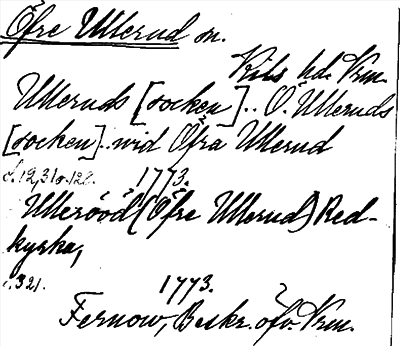 Öfre Ullerud sn.
Kils hd. Vrm.
Ulleruds [socken].. Ö. Ulleruds
[socken].. wid Öfra Ullerud
s. 12, 31 o. 122. 1773.
Ulleröód (Öfre Ullerud) Red-
kyrka,
s. 321. 1773.
Fernow, Beskr. öfv. Vrm.